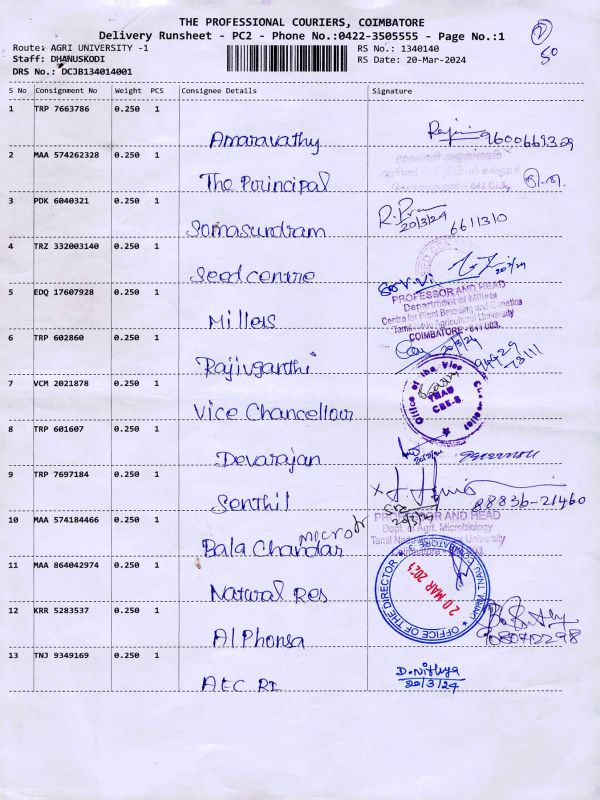 THE PROFESSIONAL COURIERS, COIMBATORE
Delivery Runsheet - PC2 - Phone No.:0422-3505555 - Page No.:1
Route: AGRI UNIVERSITY -1
RS No.: 1340140
Staff: DHANUSKODI
RS Date: 20-Mar-2024
50
DRS No.: DCJB134014001
S No Consignment No Weight PCS Consignee Details Signature
1 TRP 7663786 0.250 1
Amaravathy
2 MAA 574262328 0.250 1
The Porincipal
3 PDK 6040321 0.250 1
Somasundram R.
20/3/24 6611310
4 TRZ 332003140 0.250 1
Seed centre
5 EDQ 17607928 0.250 1
PROFESSOR AND HEAD
Department of Millets
Centre for Plant Breeding and Genetics
Tamil Nadu Agricultural University
COIMBATORE - 641 003.
Millers
6 TRP 602860 0.250 1
20/3/24
Rajivganthi
7 VCM 2021878 0.250 1
Office of the Vice Chancellor
TNAU
CBE-3.
Vice Chancellour
8 TRP 601607 0.250 1
Devarajan
9 TRP 7697184 0.250 1
Senthil
88836-21460
20/3/24
10 MAA 574184466 0.250 1
PROFESSOR AND HEAD
Dept. of Agrl. Microbiology
Tamil Nadu Agricultural University
Coimbatore
Bala Chandar micro
11 MAA 864042974 0.250 1
OFFICE OF THE DIRECTOR
20 MAR 202
Natural Res
12 KRR 5283537 0.250 1
Alphonsa
13 TNJ 9349169 0.250 1
D.Nithya
20/3/24
AEC RI